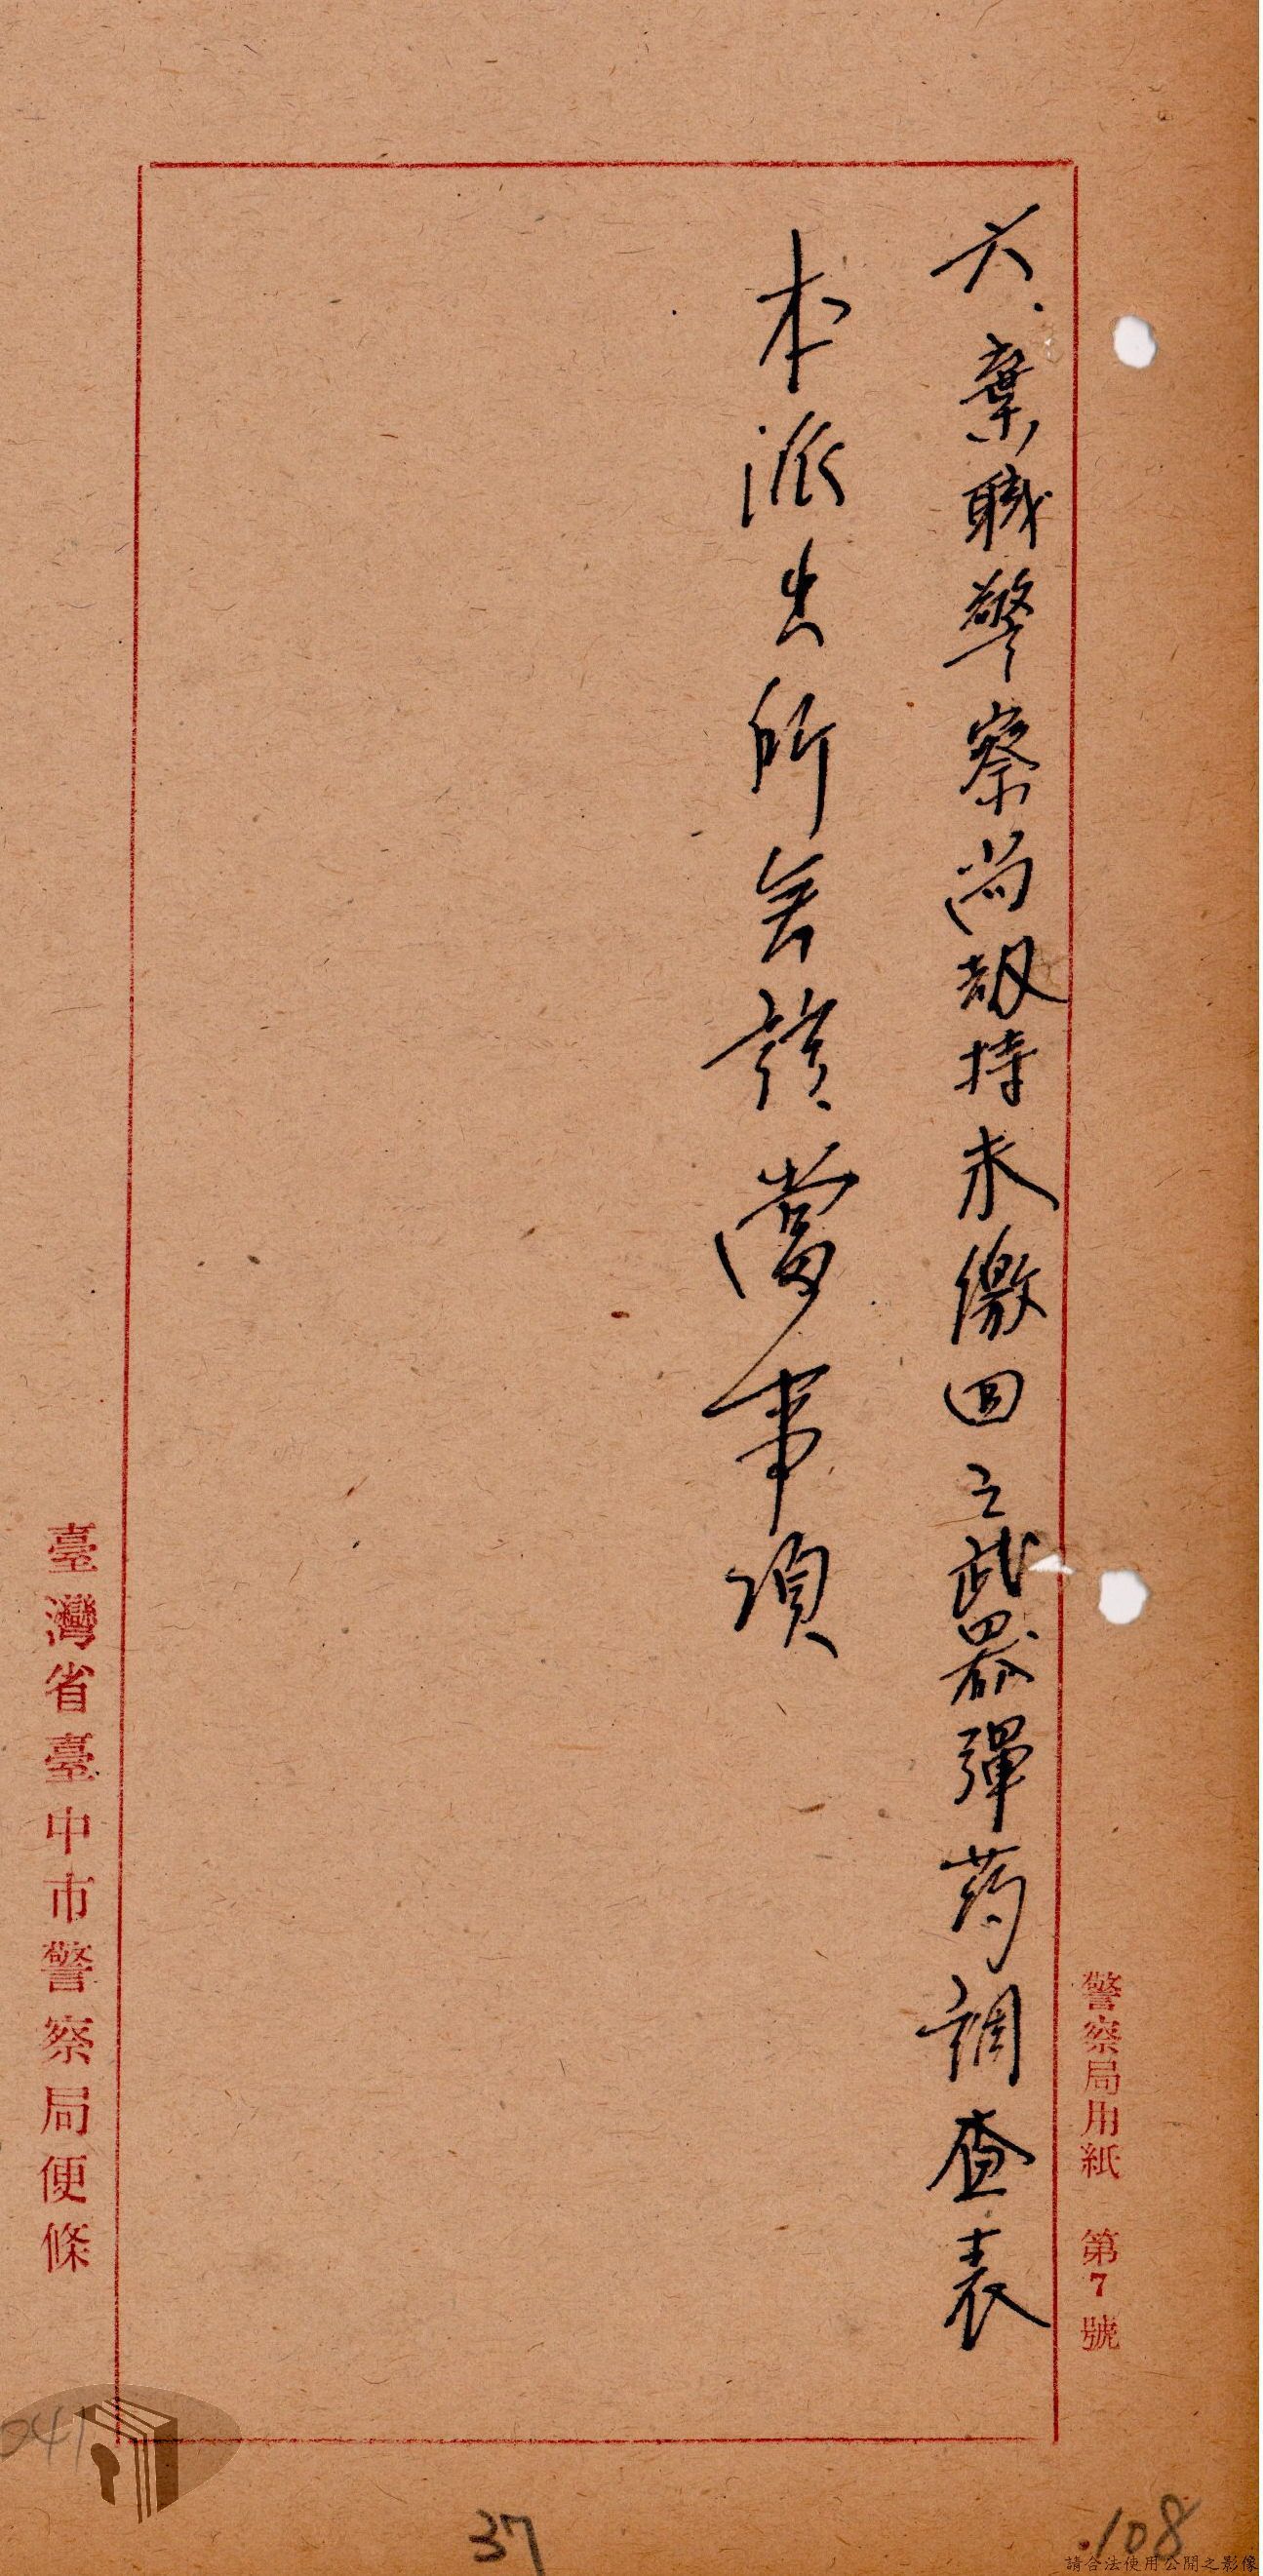 警察局用紙 第7號
六、棄職警察尚报持未繳回之武器彈药調查表
本派出所無該當事項
臺灣省臺中市警察局便條
041
37
108
請合法使用公開之影像